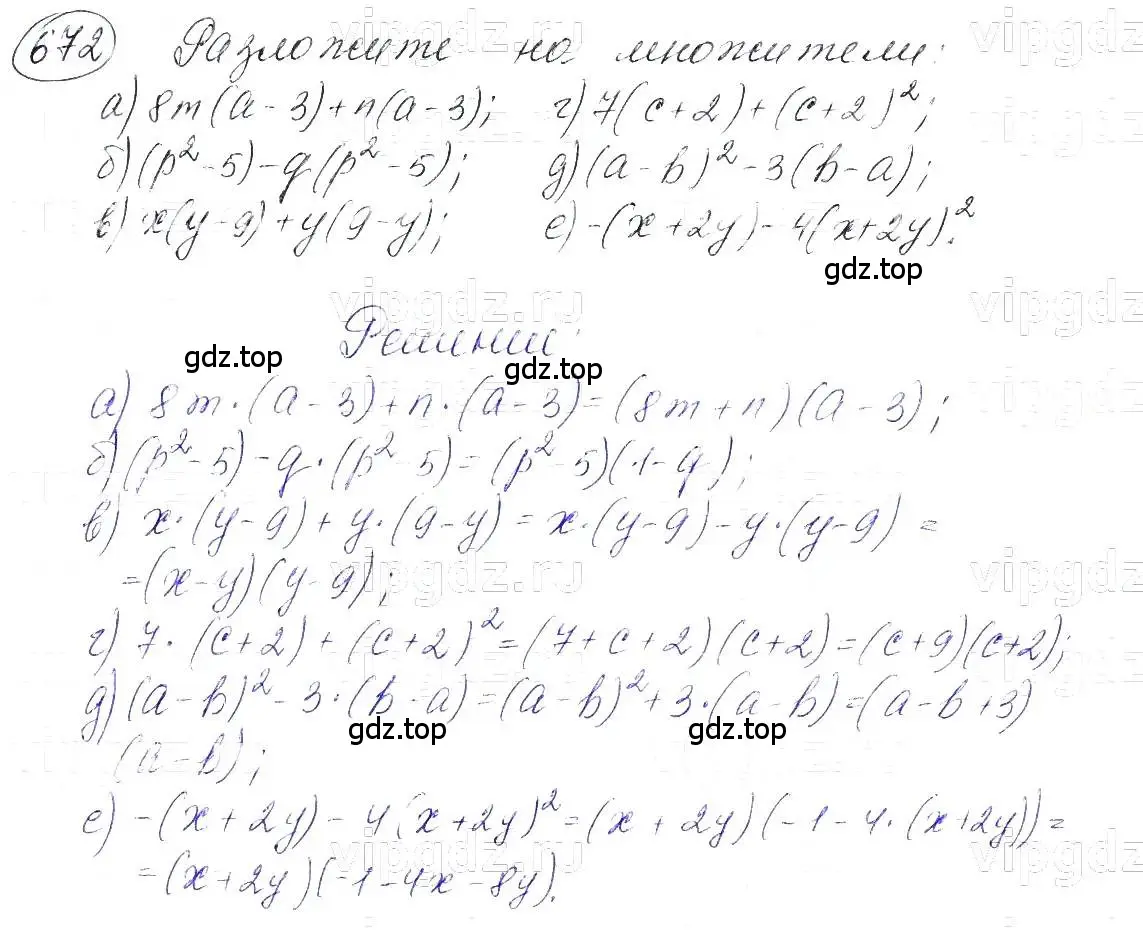 672 Разложите на множители:
а) 8m(a-3)+n(a-3); г) 7(c+2)+(c+2)²;
б) (p²-5)-q(p²-5); д) (a-b)²-3(b-a);
в) x(y-9)+y(9-y); е) -(x+2y)-4(x+2y)².
gdz.top
vipgdz.ru
Решение:
gdz.top
gdz.top
а) 8m·(a-3)+n·(a-3)=(8m+n)(a-3);
б) (p²-5)-q·(p²-5)=(p²-5)(1-q);
в) x·(y-9)+y·(9-y)=x·(y-9)-y·(y-9)=
=(x-y)(y-9);
г) 7·(c+2)+(c+2)²=(7+c+2)(c+2)=(c+9)(c+2);
д) (a-b)²-3·(b-a)=(a-b)²+3·(a-b)=(a-b+3)
gdz.top
gdz.top
(a-b);
е) -(x+2y)-4(x+2y)²=(x+2y)(-1-4·(x+2y))=
=(x+2y)(-1-4x-8y).